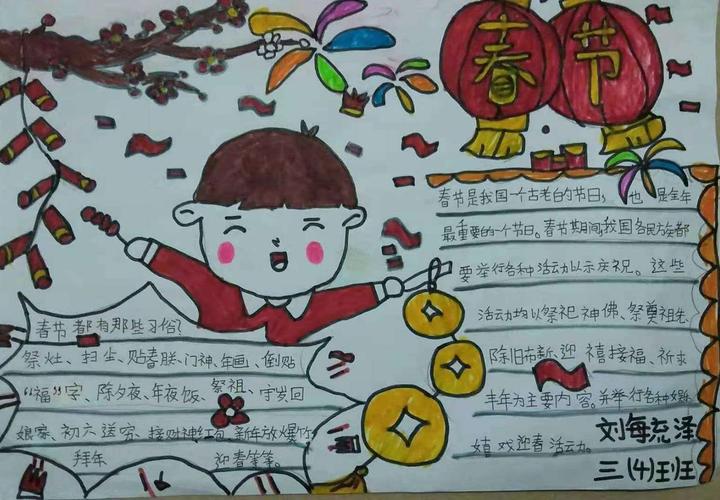 春节
春节是我国一个古老的节日，也是全年
最重要的一个节日。春节期间，我国各民族都
要举行各种活动以示庆祝。这些
活动均以祭祀神佛、祭奠祖先
除旧布新、迎禧接福、祈求
丰年为主要内容。并举行各种
嬉戏迎春活动。
刘每流泽
三(4)班
春节都有那些习俗？
祭灶、扫尘、贴春联、门神、年画、倒贴
“福”字、除夕夜、年夜饭、祭祖、守岁回
娘家、初六送穷、接财神红包、新年放爆竹
拜年 迎春等等。